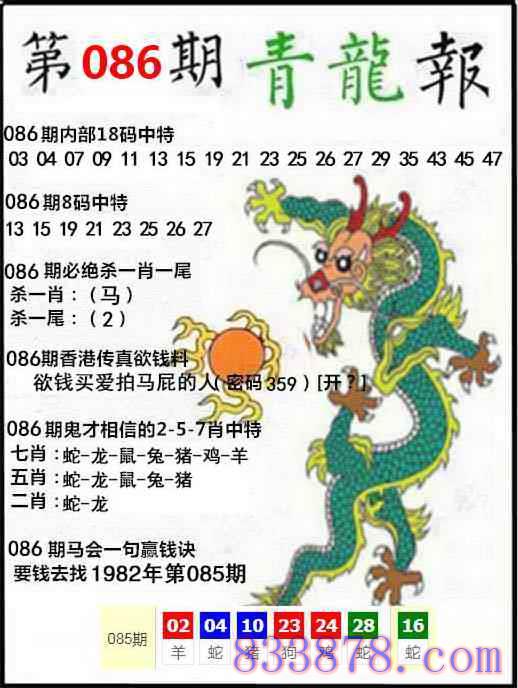 第086期青龍報
086期内部18码中特
03 04 07 09 11 13 15 19 21 23 25 26 27 29 35 43 45 47
086期8码中特
13 15 19 21 23 25 26 27
086期必绝杀一肖一尾
杀一肖：（马）
杀一尾：（2）
086期香港传真欲钱料
欲钱买爱拍马屁的人(密码359)[开？]
086期鬼才相信的2-5-7肖中特
七肖：蛇-龙-鼠-兔-猪-鸡-羊
五肖：蛇-龙-鼠-兔-猪
二肖：蛇-龙
086期马会一句赢钱诀
要钱去找1982年第085期
085期 02 04 10 23 24 28 16
羊 蛇 猪 狗 鸡 蛇 蛇
833878.com